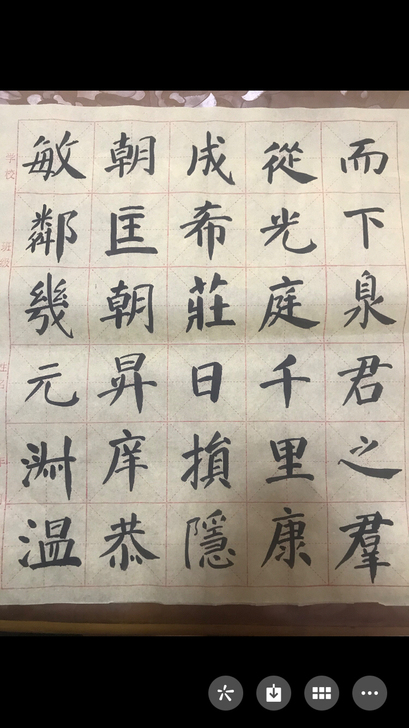 而下泉君之羣
從光庭千里康
成希莊日損隱
朝匡朝昇庠恭
敏鄰幾元淵温
学校
班级